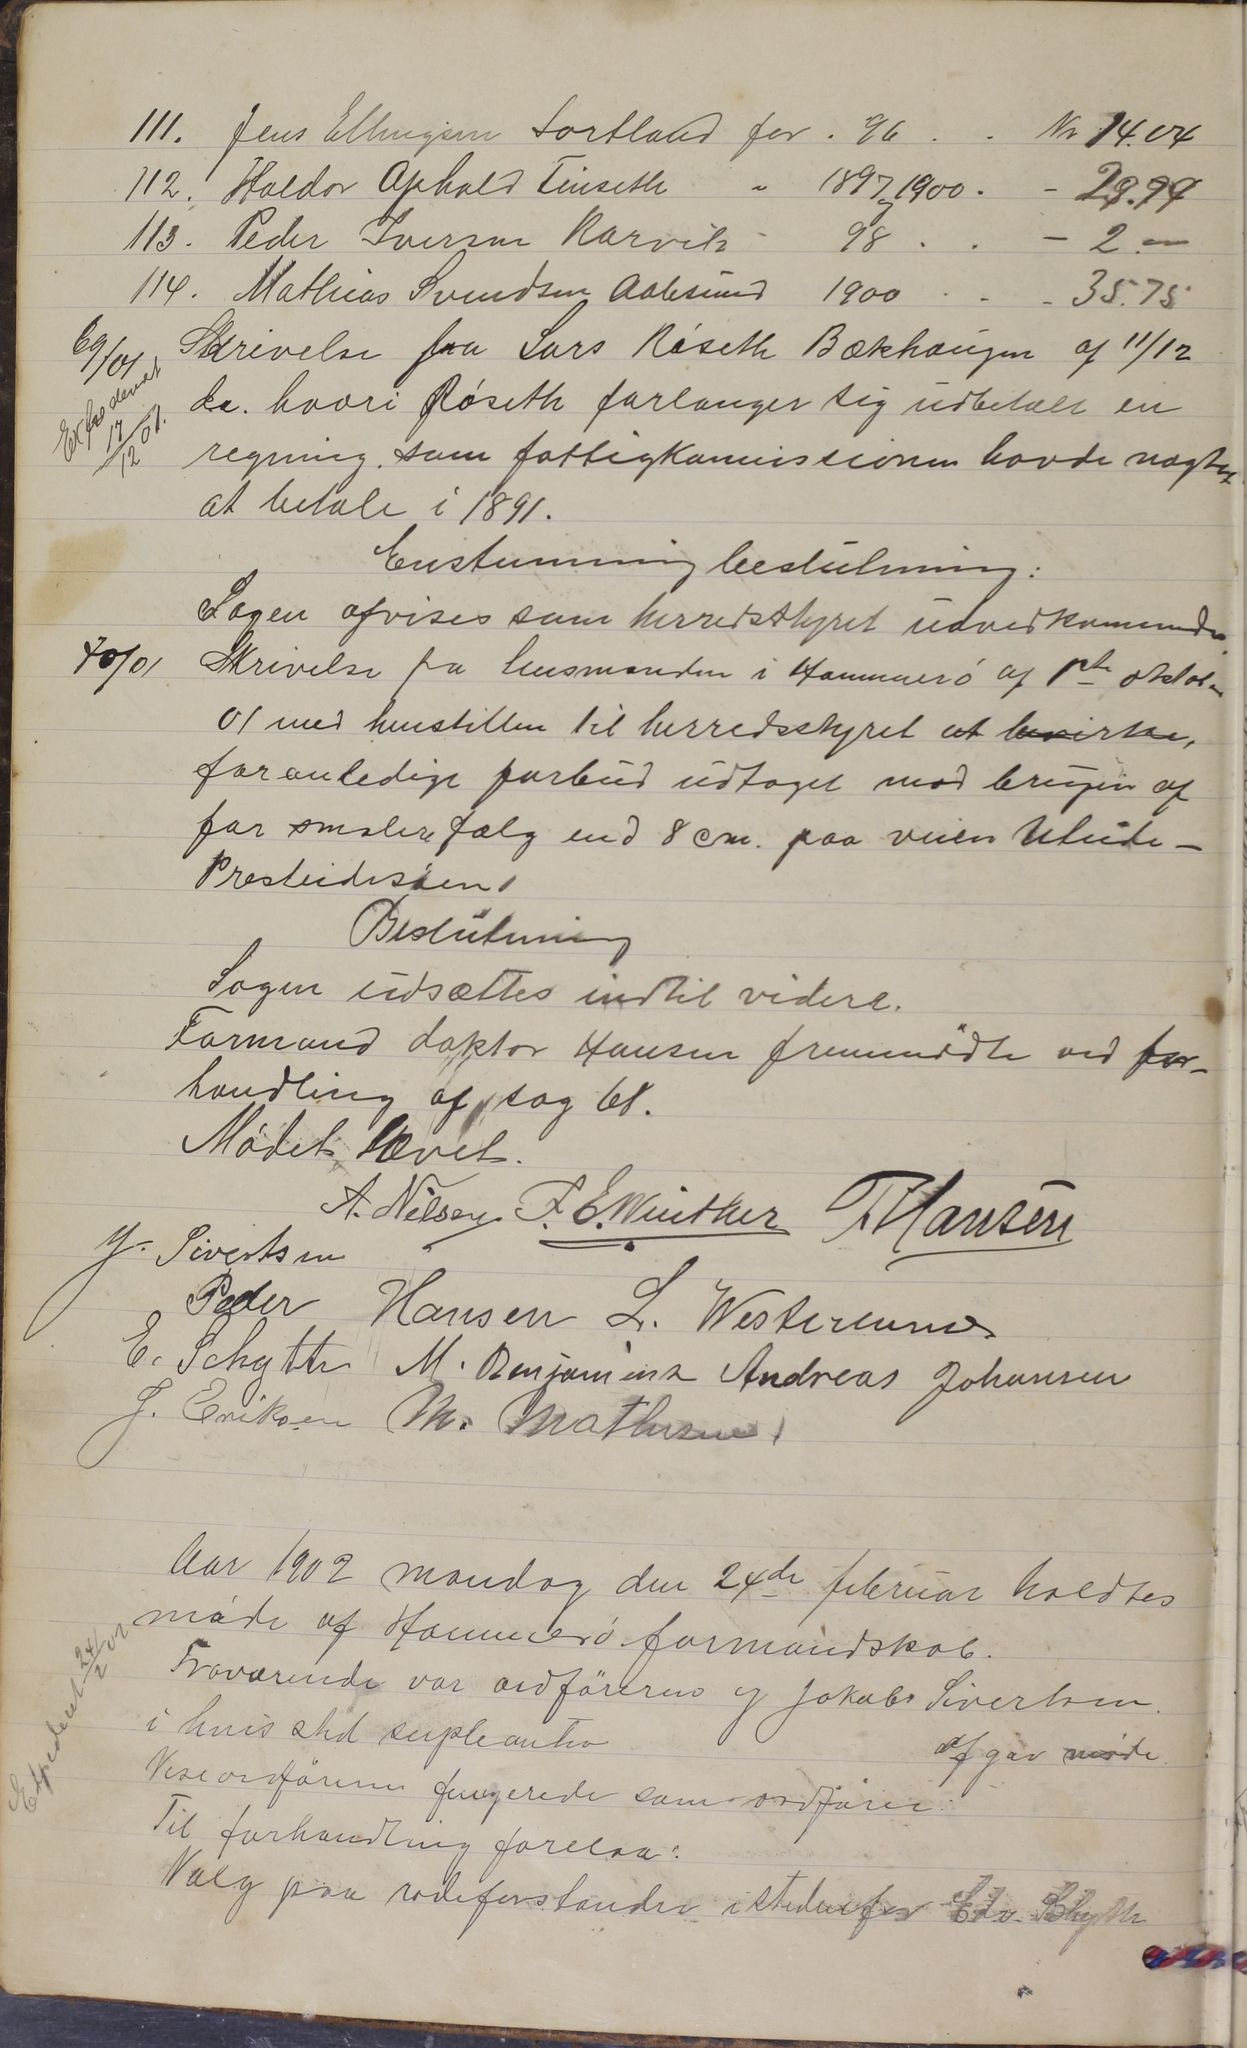 111. Jens Ellingsen Sortland for . 96 . . Kr 14.04
112. Haldor Aphald Finseth " 1897 og 1900 . - 29.99
113. Peder Iversen Karvik - 98 . . - 2 —
114. Mathias Svendsen Aalesund 1900 . . - 35.75
69/01 Skrivelse fra Lars Røseth Bækhaugen af 11/12
Expederet 17/12 01.
d.a. hvori Røseth forlanger sig udbetalt en
regning som fattigkommissionen havde nægtet
at betale i 1891.
Enstemmig beslutning:
Sagen afvises som herredsstyret uvedkommende.
70/01 Skrivelse fra lensmanden i Hammerø af 1ste oktober
01 med henstillen til herredsstyret at bevirke,
foranledige forbud udtaget mod brugen af
for smalere fælg end 8 cm. paa veien
Presteidsøen.
Beslutning
Sagen udsættes indtil videre.
Formand doktor Hansen fremmødte ved for-
handling af sag 68.
Mødet hævet.
A. Nilsen F. E. Winther T Hansen
J. Sivertsen
Peder Hansen L. Westerennes
E. Schytte M. Benjaminsen Andreas Johansen
J. Eriksen M. Mathisen
Aar 1902 mandag den 24de februar holdtes
møde af Hammerø formandskab.
Expederet 24/2 02
Fraværende var ordføreren og Jakob Sivertsen.
i hvis sted supleanten afgav møde
Viseordføreren fungerede som ordfører.
Til forhandling forelaa:
Valg paa rodeforstander istedenfor Edv. Schytte